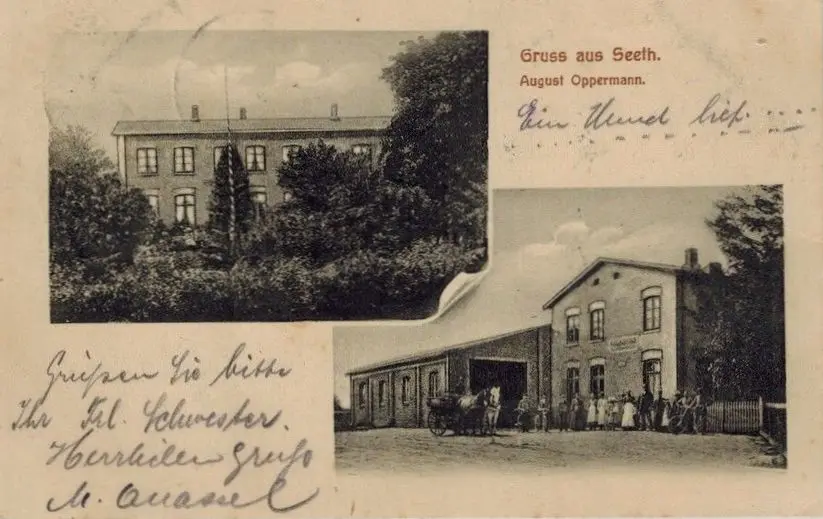 Gruss aus Seeth.
August Oppermann.
Ein Hund lief. ....
Grüßen Sie bitte
Ihr Frl. Schwester.
Herzlichen Gruß
M.